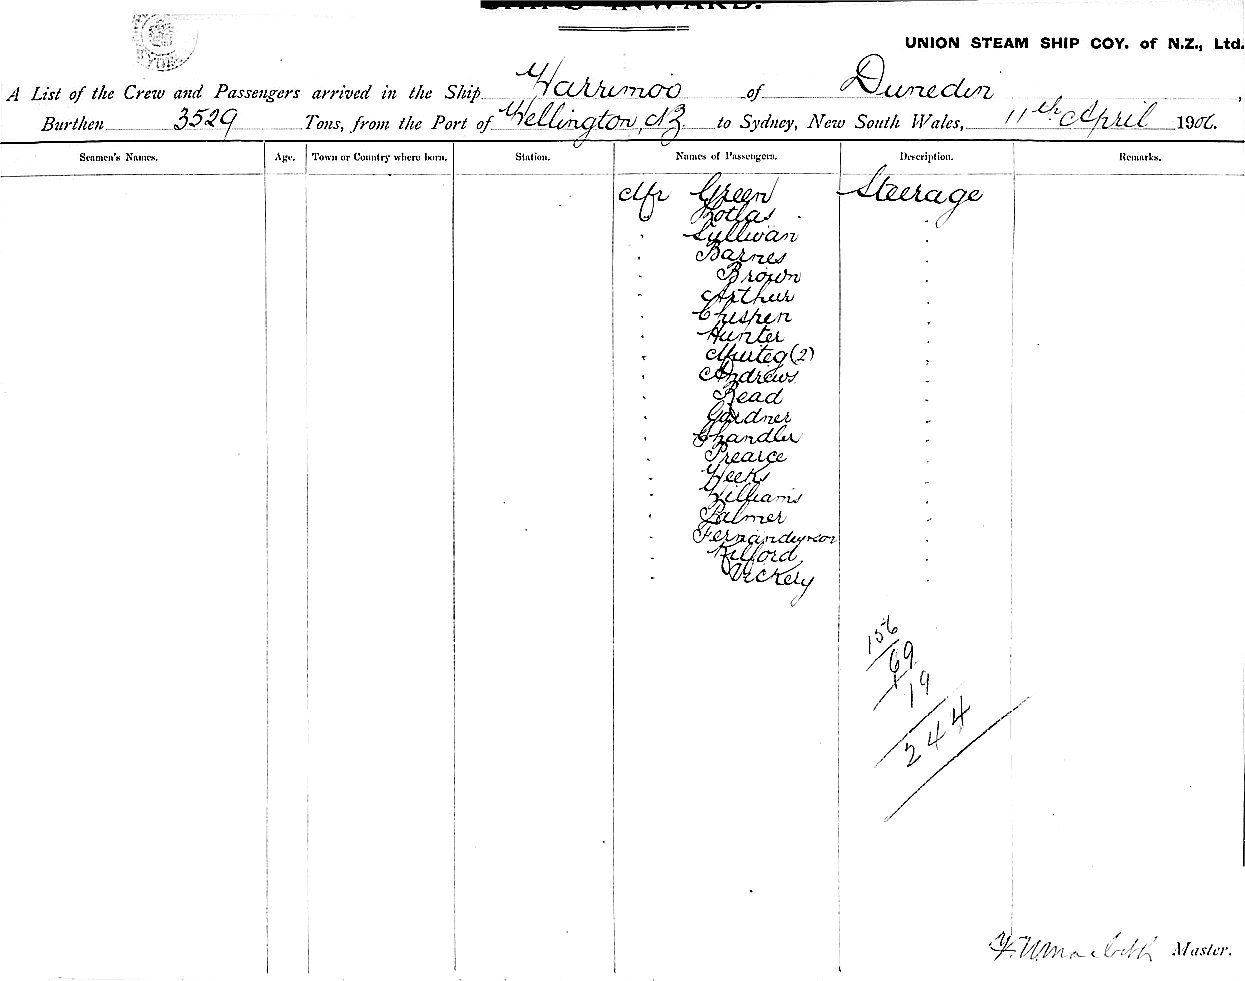 SHIPS INWARD.
UNION STEAM SHIP COY. of N.Z., Ltd.
A List of the Crew and Passengers arrived in the Ship Warrimoo of Dunedin ,
Burthen 3529 Tons, from the Port of Wellington, NZ to Sydney, New South Wales, 11th April 1906.
Seamen's Names. Age. Town or Country where born. Station. Names of Passengers. Description. Remarks.
Mr Green Steerage
" "
" Sullivan "
" Barnes "
" Brown "
" Arthur "
" Crispen "
" Hunter "
" (2) "
" Andrews "
" Read "
" Gardner "
" Chandler "
" Pearce "
" Weeks "
" Williams "
" Palmer "
" "
" Kilford "
" Vickery "
156
69
19
244
Master.